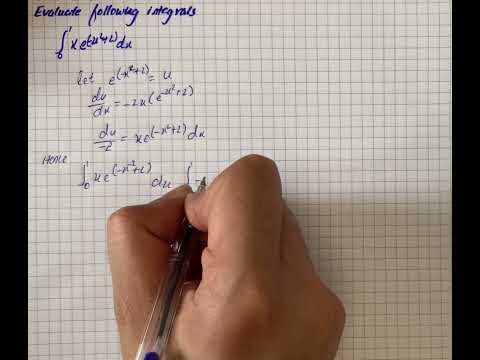 Evaluate following integrals
∫₀¹ x e^(-x²+2) dx
let e^(-x²+2) = u
du/dx = -2x (e^-x²+2)
du/-2 = x e^(-x²+2) dx
Hence
∫₀¹ x e^(-x²+2) dx ∫¹ -